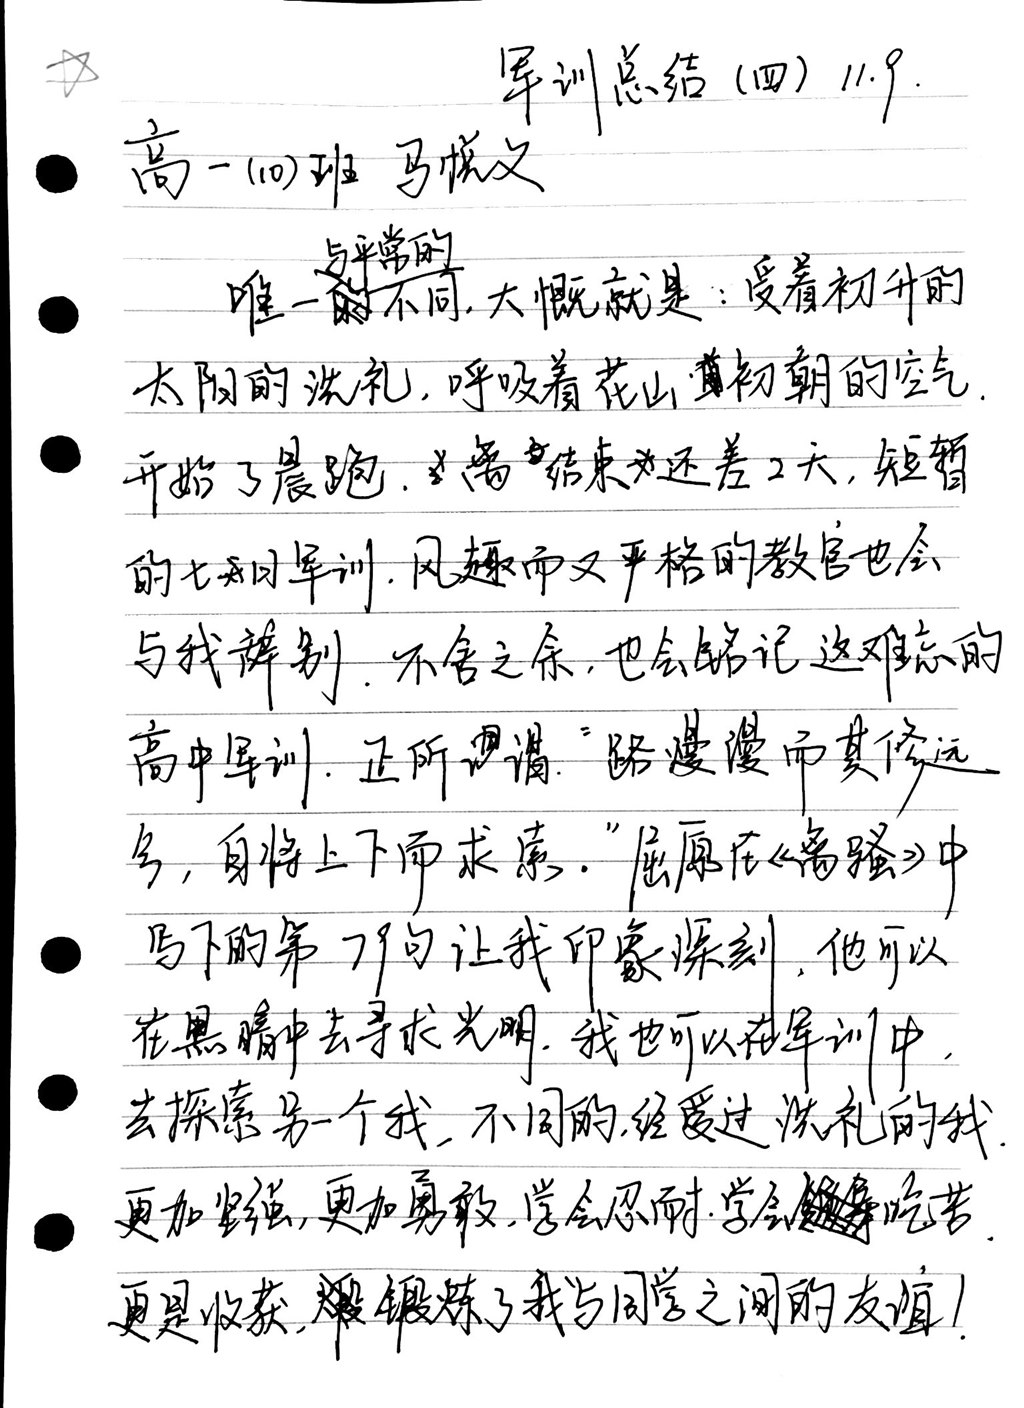 军训总结(四) 11.9.
高一(10)班 马悦文
与平常的
唯一不同,大慨就是:受着初升的
太阳的洗礼,呼吸着花山初朝的空气.
开始了晨跑.离结束还差2天,短暂
的七日军训.风趣而又严格的教官也会
与我辞别.不舍之余,也会铭记这难忘的
高中军训.正所谓."路熳漫而其修远
兮,自将上下而求索."屈原在《离骚》中
写下的第79句让我印象深刻,他可以
在黑暗中去寻求光明.我也可以在军训中,
去探索另一个我,不同的,经受过洗礼的我.
更加坚强,更加勇敢,学会忍耐.学会吃苦.
更是收获,锻炼了我与同学之间的友谊!